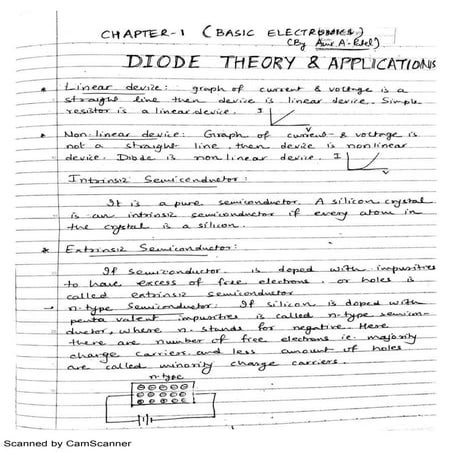 CHAPTER-1 (BASIC ELECTRONICS)
(By A. Patel)
DIODE THEORY & APPLICATIONS
* Linear device: graph of current & voltage is a
straight line then device is linear device. Simple
resistor is a linear device. I
V
* Non-linear device: Graph of current & voltage is
not a straight line then device is nonlinear
device. Diode is non linear device. I
V
Intrinsiz Semiconductor:
It is a pure semiconductor. A silicon crystal
is an intrinsiz semiconductor if every atom in
the crystal is a silicon.
* Extrinsiz Semiconductor:
If semiconductor is doped with impuritres
to have excess of free electrons or holes is
called extrinsiz semiconductor
→ n-type Semiconductor: If silicon is doped with
penta valent impuritres is called n-type semicon-
ductor, where n. stands for negative. Here
there are number of free electrons i.e. majority
charge carriers and less amount of holes
are called minority charge carriers.
n-type
Scanned by CamScanner